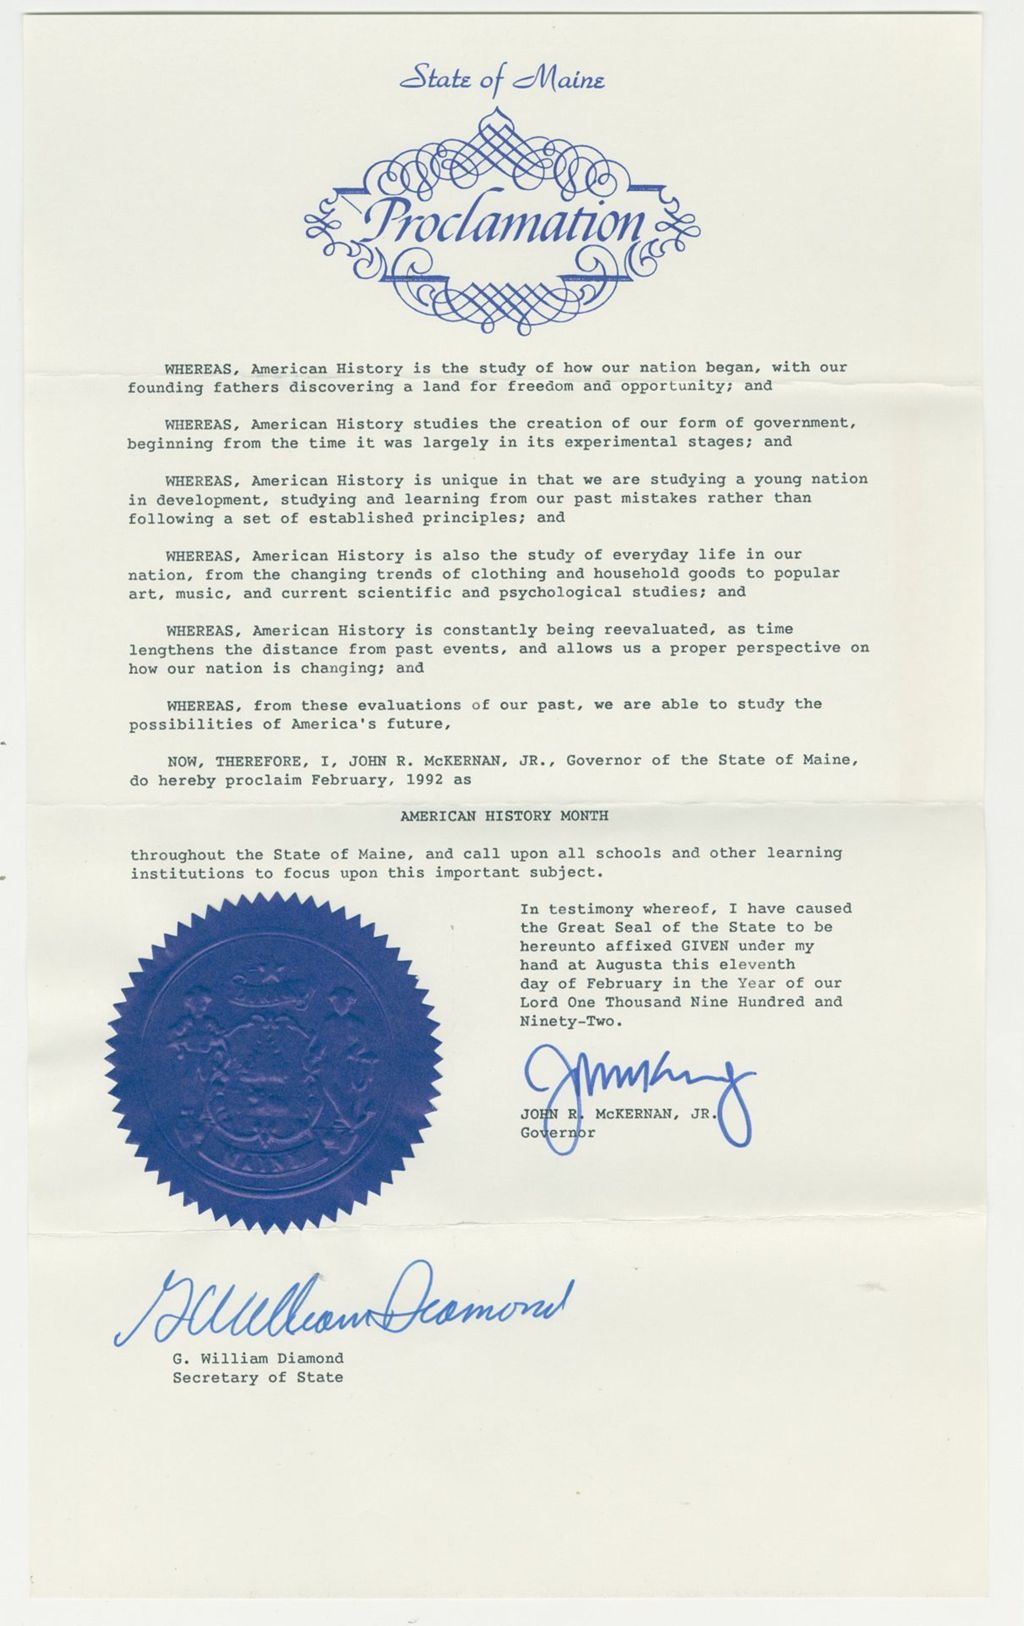 State of Maine
Proclamation
WHEREAS, American History is the study of how our nation began, with our
founding fathers discovering a land for freedom and opportunity; and
WHEREAS, American History studies the creation of our form of government,
beginning from the time it was largely in its experimental stages; and
WHEREAS, American History is unique in that we are studying a young nation
in development, studying and learning from our past mistakes rather than
following a set of established principles; and
WHEREAS, American History is also the study of everyday life in our
nation, from the changing trends of clothing and household goods to popular
art, music, and current scientific and psychological studies; and
WHEREAS, American History is constantly being reevaluated, as time
lengthens the distance from past events, and allows us a proper perspective on
how our nation is changing; and
WHEREAS, from these evaluations of our past, we are able to study the
possibilities of America's future,
NOW, THEREFORE, I, JOHN R. McKERNAN, JR., Governor of the State of Maine,
do hereby proclaim February, 1992 as
AMERICAN HISTORY MONTH
throughout the State of Maine, and call upon all schools and other learning
institutions to focus upon this important subject.
In testimony whereof, I have caused
the Great Seal of the State to be
hereunto affixed GIVEN under my
hand at Augusta this eleventh
day of February in the Year of our
Lord One Thousand Nine Hundred and
Ninety-Two.
JOHN R. McKERNAN, JR.
Governor
MAINE
G William Diamond
G. William Diamond
Secretary of State